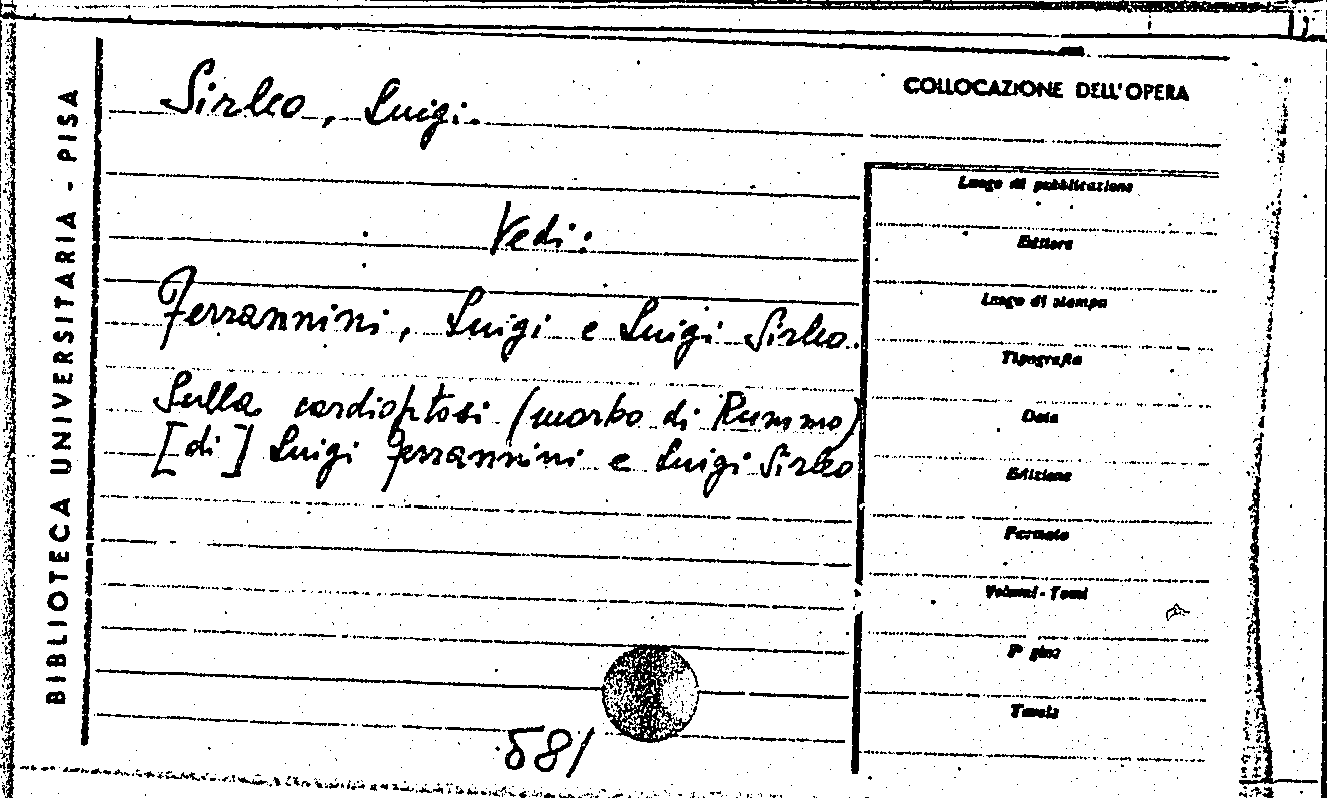 BIBLIOTECA UNIVERSITARIA - PISA
COLLOCAZIONE DELL'OPERA
Sirleo, Luigi.
Vedi:
Ferrannini, Luigi e Luigi Sirleo.
Sulla cardioptosi (morbo di Rummo)
[di] Luigi Ferrannini e Luigi Sirleo
581
Luogo di pubblicazione
Editore
Luogo di stampa
Tipografia
Data
Edizione
Formato
Volumi - Tomi
P gine
Tavole